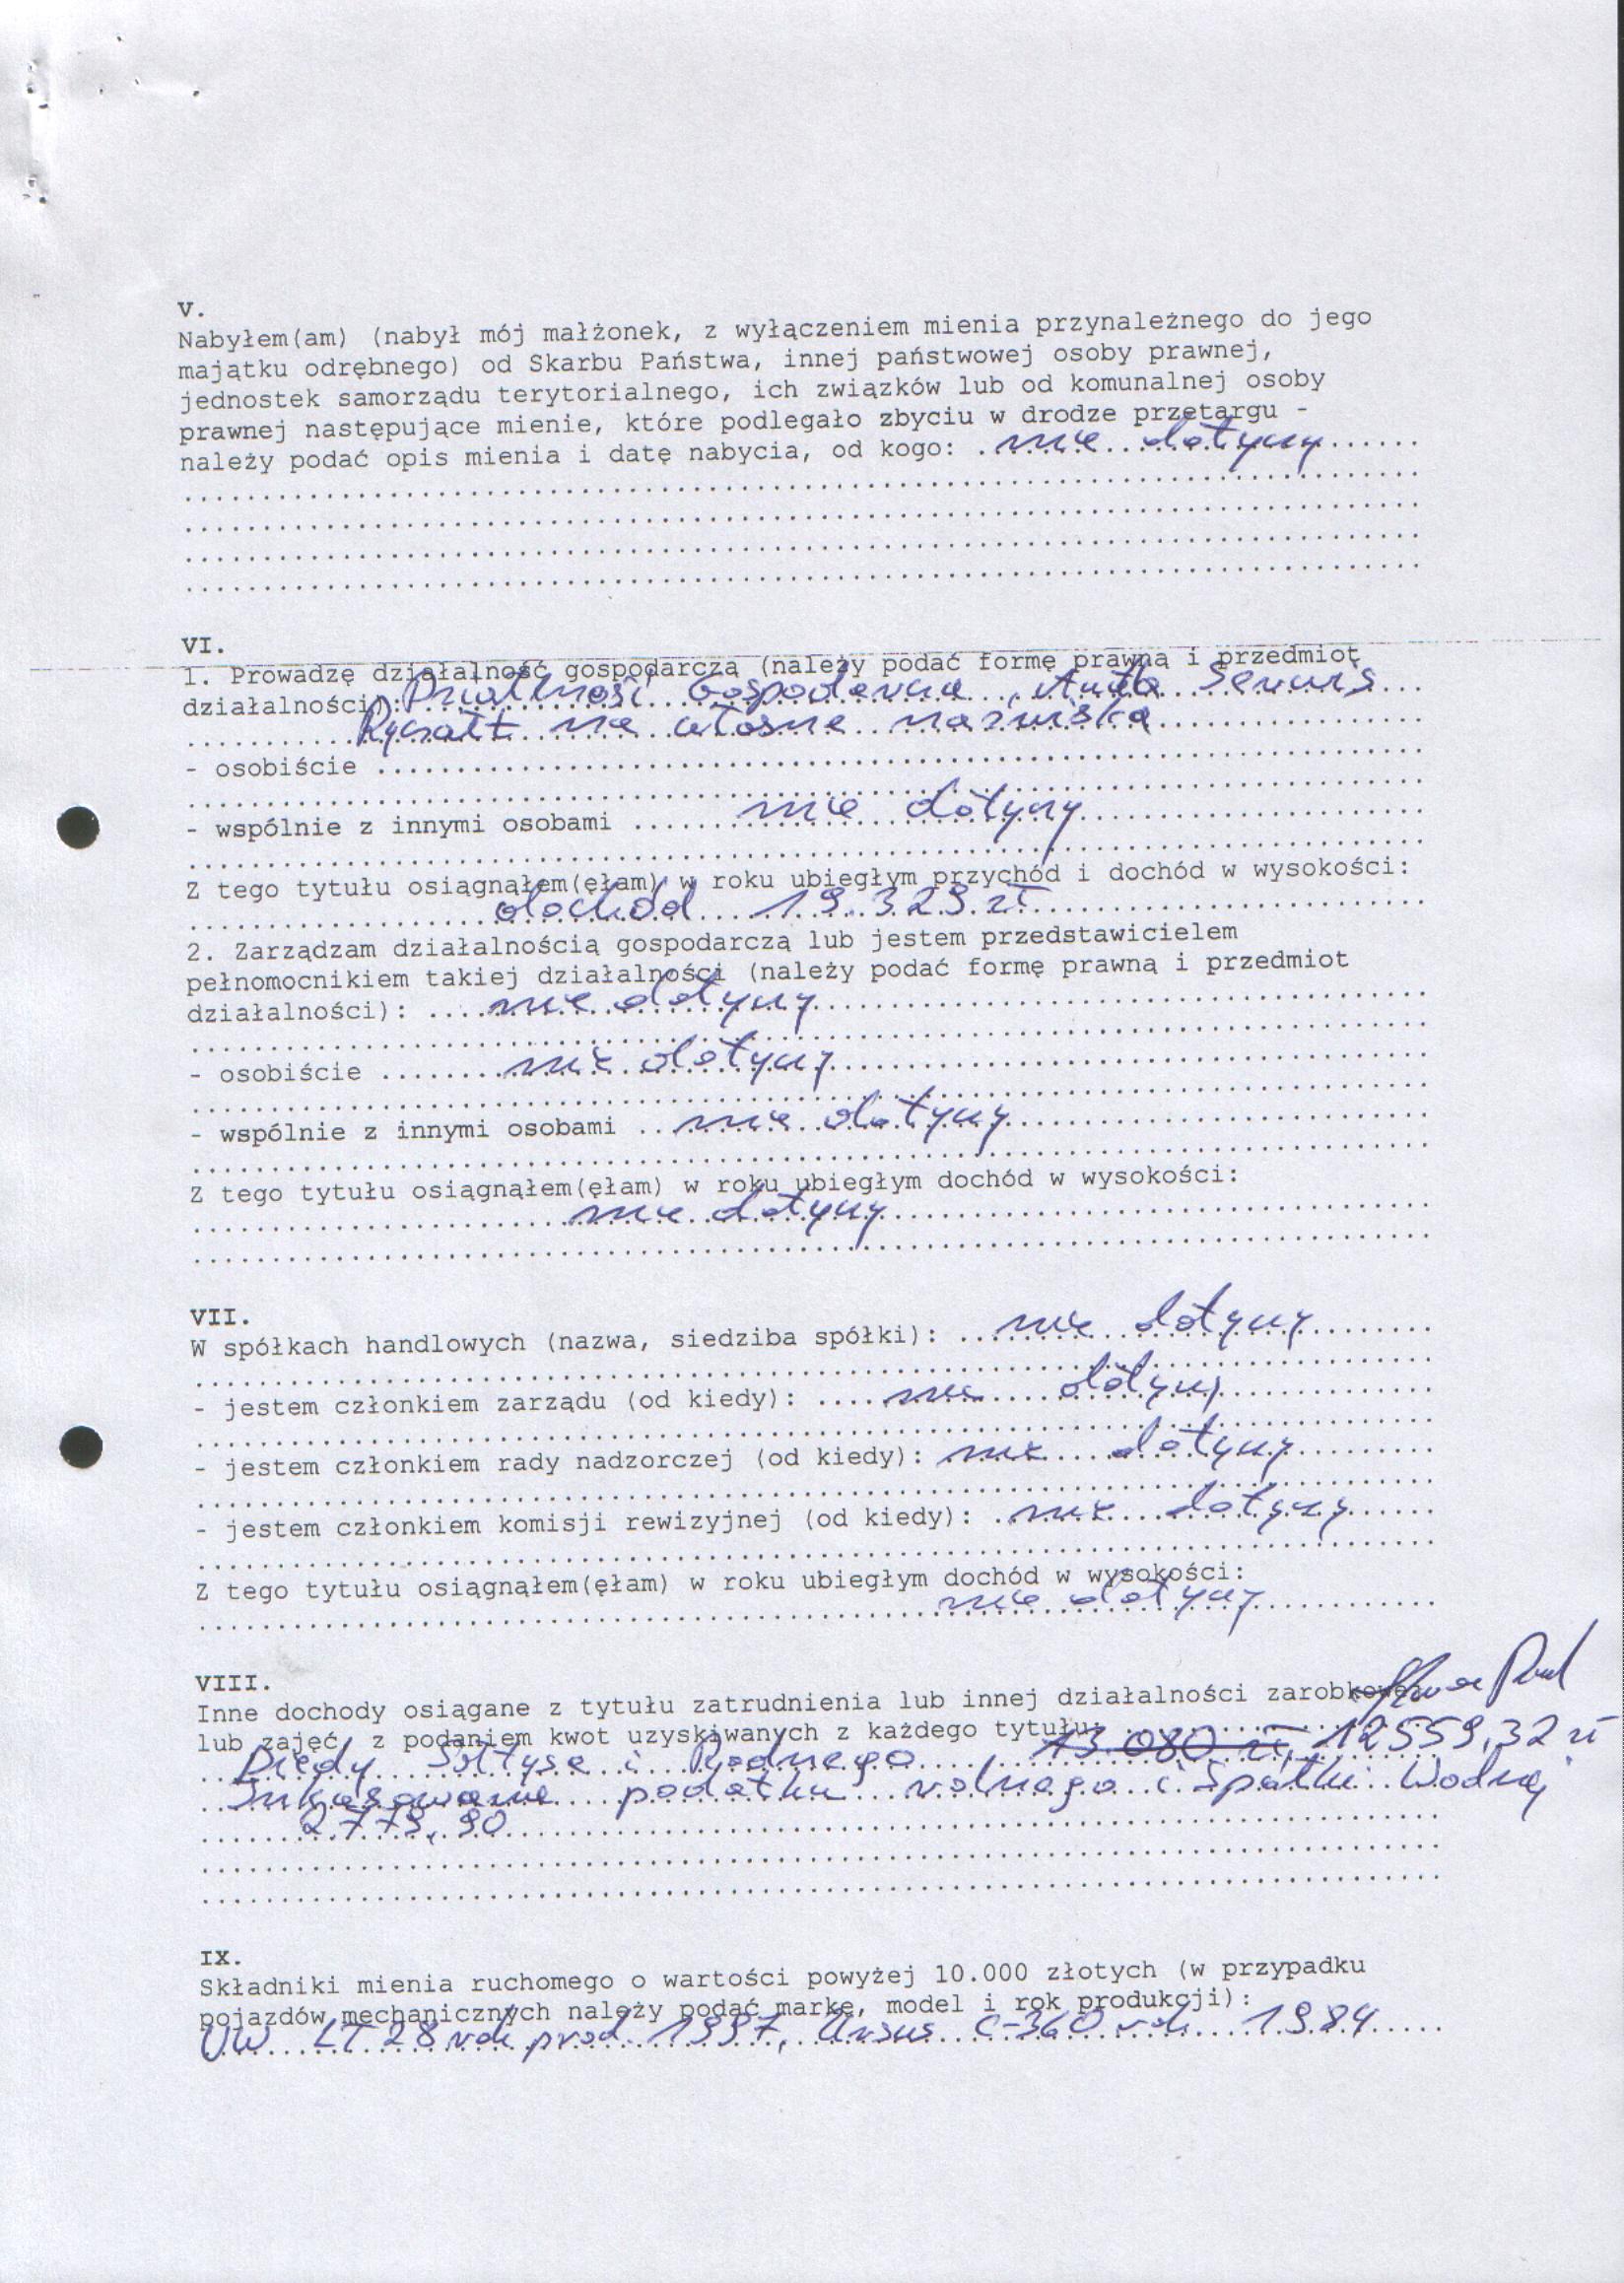 V.
Nabyłem(am) (nabył mój małżonek, z wyłączeniem mienia przynależnego do jego
majątku odrębnego) od Skarbu Państwa, innej państwowej osoby prawnej,
jednostek samorządu terytorialnego, ich związków lub od komunalnej osoby
prawnej następujące mienie, które podlegało zbyciu w drodze przetargu -
należy podać opis mienia i datę nabycia, od kogo: nie dotyczy
VI.
1. Prowadzę działalność gospodarczą (należy podać formę prawną i przedmiot
działalności): Działność Gospodarcza Auto Serwis
Ryczałt na własne nazwisko
- osobiście
- wspólnie z innymi osobami nie dotyczy
Z tego tytułu osiągnąłem(ęłam) w roku ubiegłym przychód i dochód w wysokości:
dochód 19.329 zł
2. Zarządzam działalnością gospodarczą lub jestem przedstawicielem
pełnomocnikiem takiej działalności (należy podać formę prawną i przedmiot
działalności): nie dotyczy
- osobiście nie dotyczy
- wspólnie z innymi osobami nie dotyczy
Z tego tytułu osiągnąłem(ęłam) w roku ubiegłym dochód w wysokości:
nie dotyczy
VII.
W spółkach handlowych (nazwa, siedziba spółki): nie dotyczy
- jestem członkiem zarządu (od kiedy): nie dotyczy
- jestem członkiem rady nadzorczej (od kiedy): nie dotyczy
- jestem członkiem komisji rewizyjnej (od kiedy): nie dotyczy
Z tego tytułu osiągnąłem(ęłam) w roku ubiegłym dochód w wysokości:
nie dotyczy
VIII.
Inne dochody osiągane z tytułu zatrudnienia lub innej działalności zarobkowej
lub zajęć, z podaniem kwot uzyskiwanych z każdego tytułu:
Diety Sołtysa i Radnego 13.080 zł, 12559,32 zł
Inkasowanie podatku rolnego i Spółki Wodnej
2779,90
IX.
Składniki mienia ruchomego o wartości powyżej 10.000 złotych (w przypadku
pojazdów mechanicznych należy podać markę, model i rok produkcji):
VW LT 28 rok prod. 1997, Ursus C-360 rok 1984